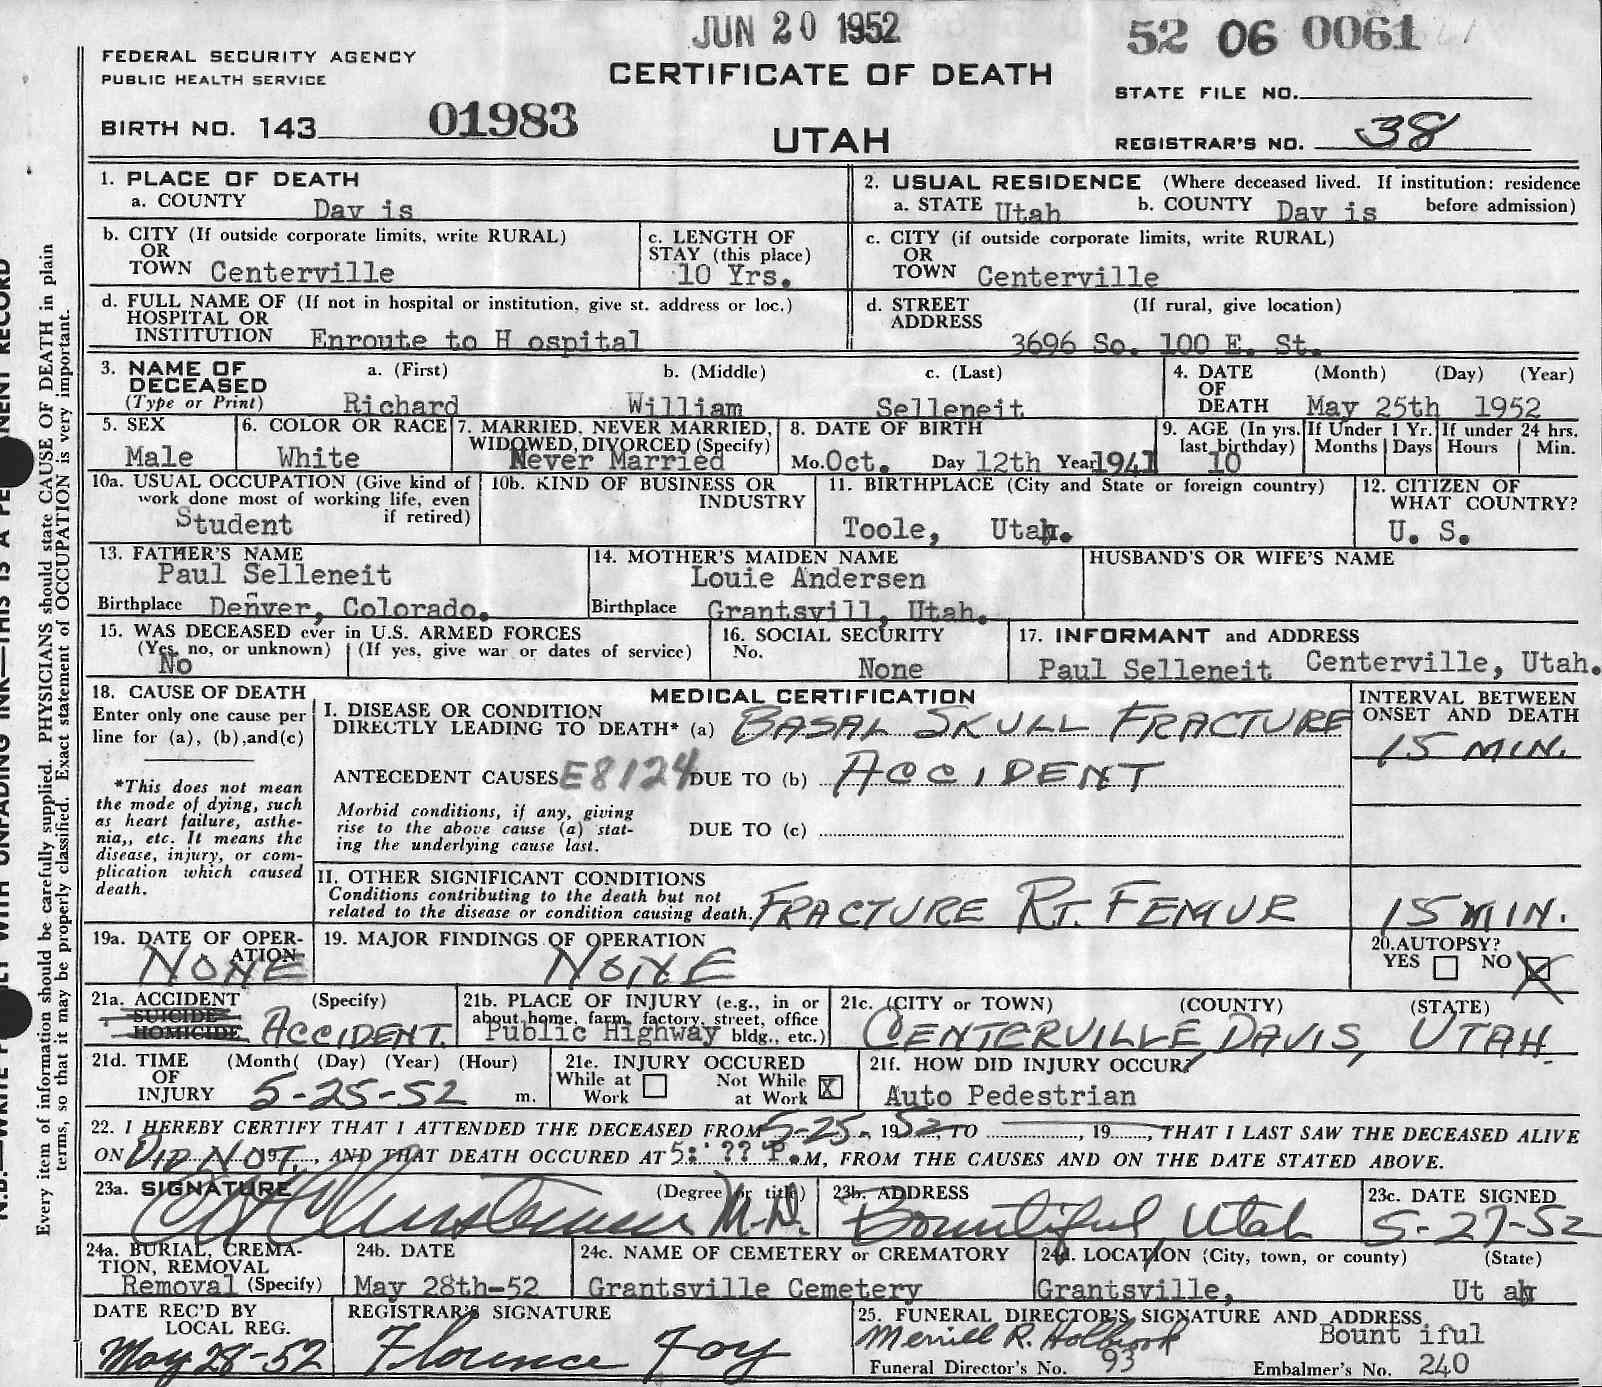 JUN 20 1952
52 06 0061
FEDERAL SECURITY AGENCY
PUBLIC HEALTH SERVICE
CERTIFICATE OF DEATH
STATE FILE NO.
BIRTH NO. 143 01983
UTAH
REGISTRAR'S NO. 38
1. PLACE OF DEATH
a. COUNTY Dav is
2. USUAL RESIDENCE (Where deceased lived. If institution: residence before admission)
a. STATE Utah b. COUNTY Dav is
b. CITY (If outside corporate limits, write RURAL)
OR
TOWN Centerville
c. LENGTH OF
STAY (this place)
10 Yrs.
c. CITY (if outside corporate limits, write RURAL)
OR
TOWN Centerville
d. FULL NAME OF (If not in hospital or institution, give st. address or loc.)
HOSPITAL OR
INSTITUTION Enroute to H ospital
d. STREET (If rural, give location)
ADDRESS
3696 So. 100 E. St.
3. NAME OF DECEASED
(Type or Print)
a. (First) b. (Middle) c. (Last)
Richard William Selleneit
4. DATE OF DEATH (Month) (Day) (Year)
May 25th 1952
5. SEX
Male
6. COLOR OR RACE
White
7. MARRIED, NEVER MARRIED,
WIDOWED, DIVORCED (Specify)
Never Married
8. DATE OF BIRTH
Mo. Oct. Day 12th Year 1941
9. AGE (In yrs. last birthday)
10
If Under 1 Yr.
Months Days
If under 24 hrs.
Hours Min.
10a. USUAL OCCUPATION (Give kind of
work done most of working life, even
if retired)
Student
10b. KIND OF BUSINESS OR
INDUSTRY
11. BIRTHPLACE (City and State or foreign country)
Toole, Utah.
12. CITIZEN OF
WHAT COUNTRY?
U. S.
13. FATHER'S NAME
Paul Selleneit
Birthplace Denver, Colorado.
14. MOTHER'S MAIDEN NAME
Louie Andersen
Birthplace Grantsvill, Utah.
HUSBAND'S OR WIFE'S NAME
15. WAS DECEASED ever in U.S. ARMED FORCES
(Yes, no, or unknown) (If yes, give war or dates of service)
No
16. SOCIAL SECURITY
No.
None
17. INFORMANT and ADDRESS
Paul Selleneit Centerville, Utah.
18. CAUSE OF DEATH
Enter only one cause per
line for (a), (b), and (c)
*This does not mean
the mode of dying, such
as heart failure, asthe-
nia,, etc. It means the
disease, injury, or com-
plication which caused
death.
MEDICAL CERTIFICATION
I. DISEASE OR CONDITION
DIRECTLY LEADING TO DEATH* (a) BASAL SKULL FRACTURE
ANTECEDENT CAUSES E8124 DUE TO (b) ACCIDENT
Morbid conditions, if any, giving
rise to the above cause (a) stat-
ing the underlying cause last.
DUE TO (c)
INTERVAL BETWEEN
ONSET AND DEATH
15 MIN.
II. OTHER SIGNIFICANT CONDITIONS
Conditions contributing to the death but not
related to the disease or condition causing death. FRACTURE RT. FEMUR
15 MIN.
19a. DATE OF OPER-
ATION
NONE
19. MAJOR FINDINGS OF OPERATION
NONE
20. AUTOPSY?
YES NO X
21a. ACCIDENT (Specify)
SUICIDE
HOMICIDE ACCIDENT.
21b. PLACE OF INJURY (e.g., in or
about home, farm, factory, street, office
bldg., etc.)
Public Highway
21c. (CITY or TOWN) (COUNTY) (STATE)
CENTERVILLE, DAVIS, UTAH.
21d. TIME (Month( (Day) (Year) (Hour)
OF
INJURY 5-25-52 m.
21e. INJURY OCCURED
While at Work Not While at Work X
21f. HOW DID INJURY OCCUR?
Auto Pedestrian
22. I HEREBY CERTIFY THAT I ATTENDED THE DECEASED FROM 5-25-, 1952, TO , 19 , THAT I LAST SAW THE DECEASED ALIVE
ON DID NOT, 19 , AND THAT DEATH OCCURED AT 5: ?? P.M, FROM THE CAUSES AND ON THE DATE STATED ABOVE.
23a. SIGNATURE (Degree or title)
M.D.
23b. ADDRESS
Bountiful Utah
23c. DATE SIGNED
5-27-52
24a. BURIAL, CREMA-
TION, REMOVAL
Removal (Specify)
24b. DATE
May 28th-52
24c. NAME OF CEMETERY or CREMATORY
Grantsville Cemetery
24d. LOCATION (City, town, or county) (State)
Grantsville, Ut ah
DATE REC'D BY
LOCAL REG.
May 28-52
REGISTRAR'S SIGNATURE
Florence Foy
25. FUNERAL DIRECTOR'S SIGNATURE AND ADDRESS
Merrill R. Holbrook Bount iful
Funeral Director's No. 93 Embalmer's No. 240
Every item of information should be carefully supplied. PHYSICIANS should state CAUSE OF DEATH in plain
terms, so that it may be properly classified. Exact statement of OCCUPATION is very important.